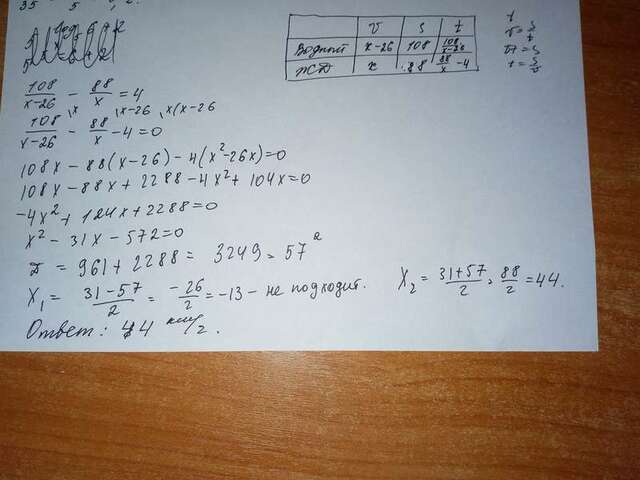 v s t
Водный x-26 108 108/x-26
ЖД x 88 88/x -4
t
v = s/t
vt = s
t = s/v
108/x-26 - 88/x = 4
108/x-26 \x - 88/x \x-26 - 4 \x(x-26 = 0
108x - 88(x-26) - 4(x²-26x)=0
108x - 88x + 2288 - 4x² + 104x = 0
-4x² + 124x + 2288 = 0
x² - 31x - 572 = 0
D = 961 + 2288 = 3249 = 57²
X₁ = 31-57/2 = -26/2 = -13 - не подходит. X₂ = 31+57/2 = 88/2 = 44.
Ответ: 44 км/ч.